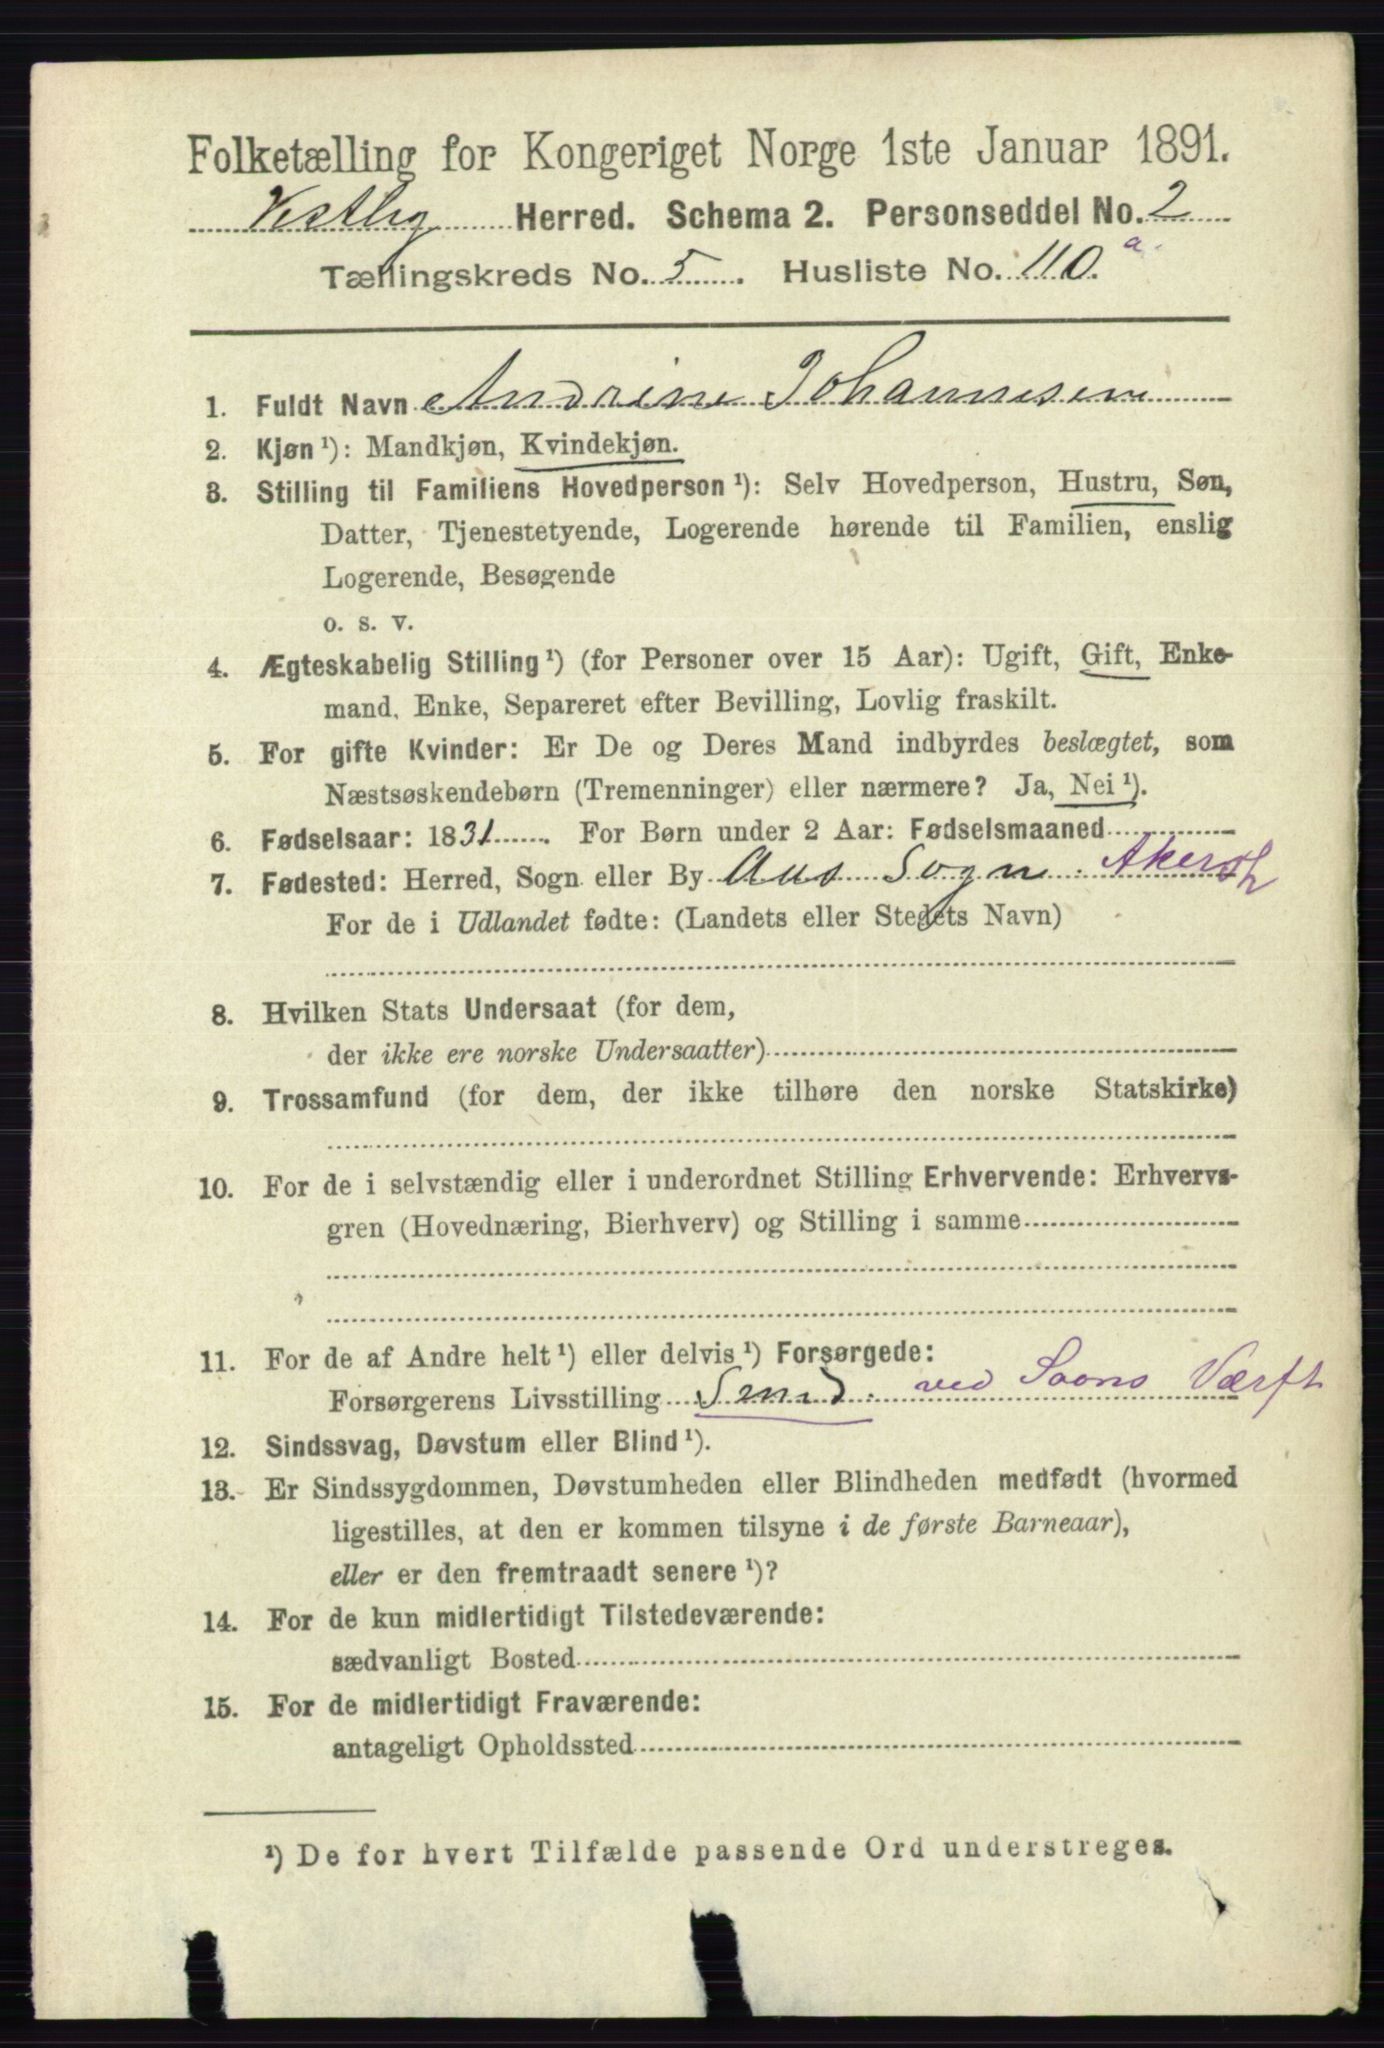 Folketælling for Kongeriget Norge 1ste Januar 1891.
Vestby Herred. Schema 2. Personseddel No. 2
Tællingskreds No. 5. Husliste No. 110 a.
1. Fuldt Navn Andrine Johannesen
2. Kjøn ¹): Mandkjøn, Kvindekjøn.
3. Stilling til Familiens Hovedperson ¹): Selv Hovedperson, Hustru, Søn,
Datter, Tjenestetyende, Logerende hørende til Familien, enslig
Logerende, Besøgende
o. s. v.
4. Ægteskabelig Stilling ¹) (for Personer over 15 Aar): Ugift, Gift, Enke-
mand, Enke, Separeret efter Bevilling, Lovlig fraskilt.
5. For gifte Kvinder: Er De og Deres Mand indbyrdes beslægtet, som
Næstsøskendebørn (Tremenninger) eller nærmere? Ja, Nei ¹).
6. Fødselsaar: 1831. For Børn under 2 Aar: Fødselsmaaned
7. Fødested: Herred, Sogn eller By Aas Sogn. Akersh
For de i Udlandet fødte: (Landets eller Stedets Navn)
8. Hvilken Stats Undersaat (for dem,
der ikke ere norske Undersaatter)
9. Trossamfund (for dem, der ikke tilhøre den norske Statskirke)
10. For de i selvstændig eller i underordnet Stilling Erhvervende: Erhvervs-
gren (Hovednæring, Bierhverv) og Stilling i samme
11. For de af Andre helt ¹) eller delvis ¹) Forsørgede:
Forsørgerens Livsstilling Smed. ved Soons Værft
12. Sindssvag, Døvstum eller Blind ¹).
13. Er Sindssygdommen, Døvstumheden eller Blindheden medfødt (hvormed
ligestilles, at den er kommen tilsyne i de første Barneaar),
eller er den fremtraadt senere ¹)?
14. For de kun midlertidigt Tilstedeværende:
sædvanligt Bosted
15. For de midlertidigt Fraværende:
antageligt Opholdssted
¹) De for hvert Tilfælde passende Ord understreges.